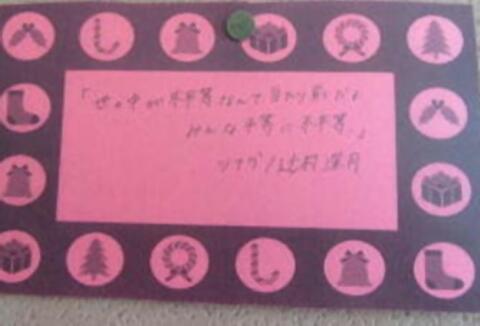 「世の中が不平等なんて当たり前だよ
みんな平等に不平等。」
ツナグ/辻村深月